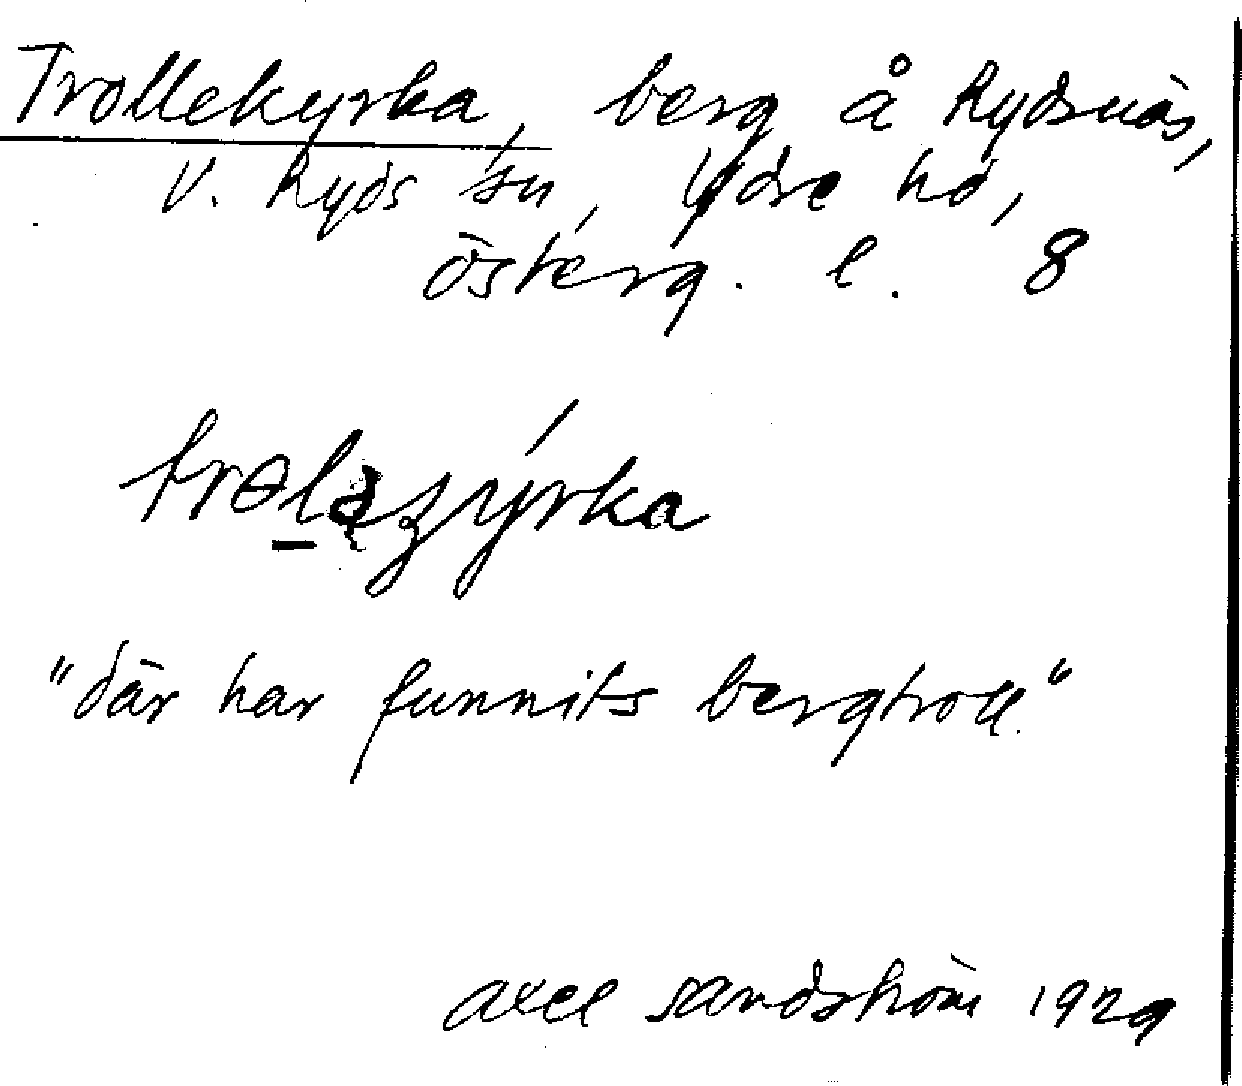 Trollekyrka, berg å Rydsnäs,
V. Ryds sn, Ydre hd,
Österg. l. 8
"där har funnits bergtroll."
axel sandström 1929